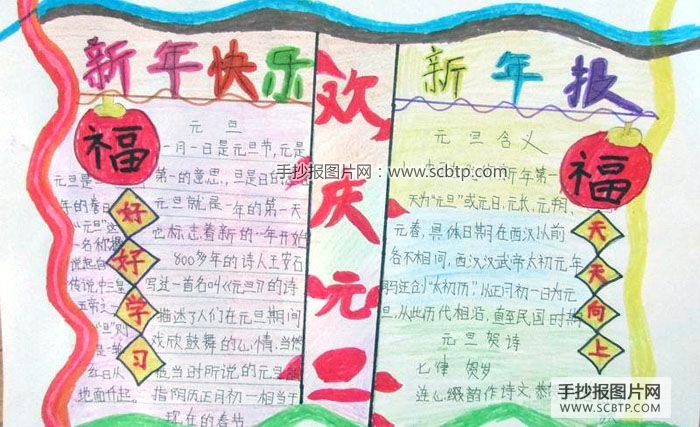 新年快乐
元旦
一月一日是元旦节,元是
第一的意思,旦是日的
元旦就是一年的第一天
也标志着新的一年开始
800多年的诗人王安石
写过一首名叫《元旦》的诗
描述了人们在元旦期间
欢欣鼓舞的心情,当然
他当时所说的元旦
指阴历正月初一相当于
现在的春节
元旦是
年的春日
“元旦”这
一名称据
说起自
传说中三皇
五帝之
“旦”则
红日从
地面升起。
福
好好学习
欢庆元旦
新年报
元旦含义
新年第一
天为“元旦”或元日、元长、元朔、
元春,具体日期在西汉以前
各不相同,西汉汉武帝太初元年
创“太初历”以正月初一日为元
旦,从此历代相沿,直至民国时期
元旦贺诗
七律 贺岁
连心缀韵作诗文
福
天天向上
手抄报图片网·www.scbtp.com
手抄报图片网
WWW.SCBTP.COM